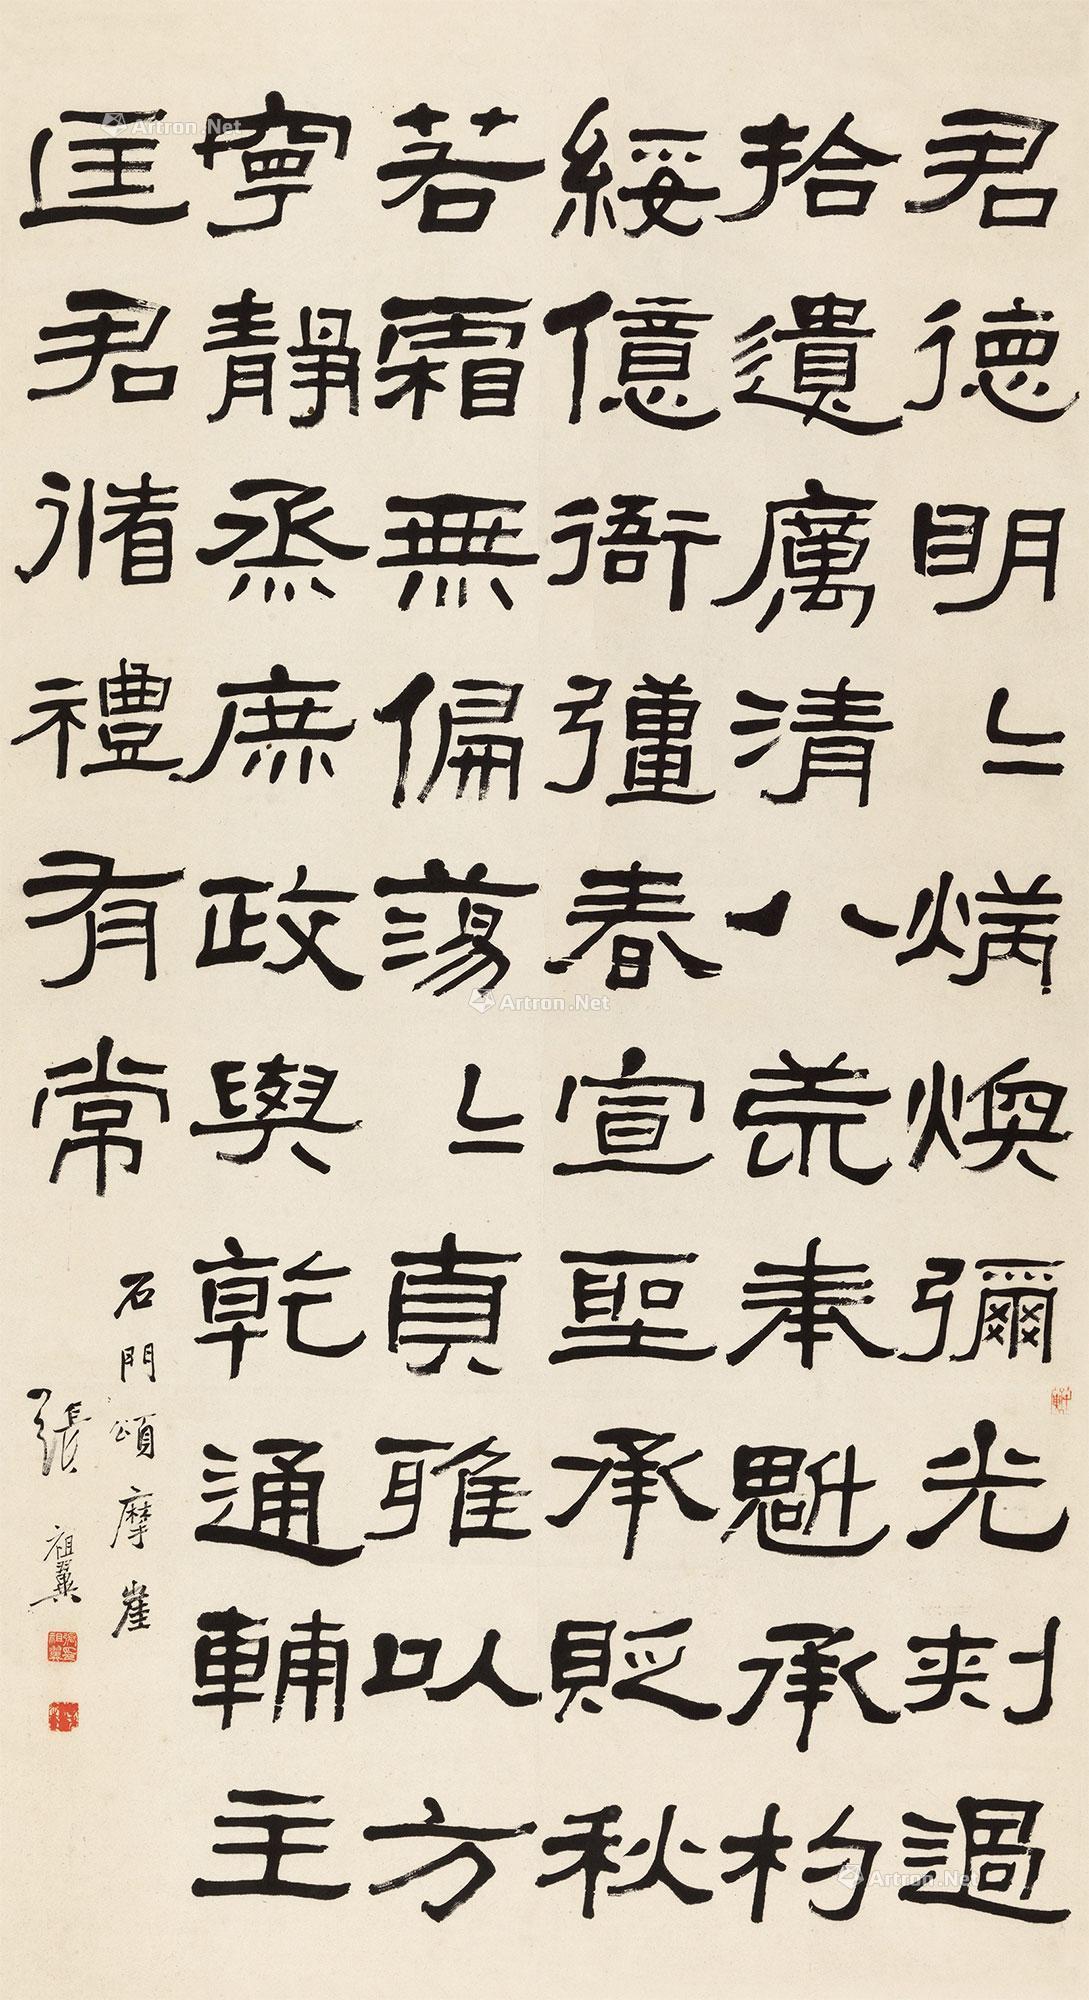 君德明〻炳煥彌光刺過
拾遺厲清八荒奉魁承杓
綏億衙彊春宣聖承貶秋
若霜無偏蕩〻貞雅以方
寧靜烝庶政與乾通輔主
匡君脩禮有常
石門頌摩崖
張祖翼
Artron.Net
Artron.Net
Artron.Net